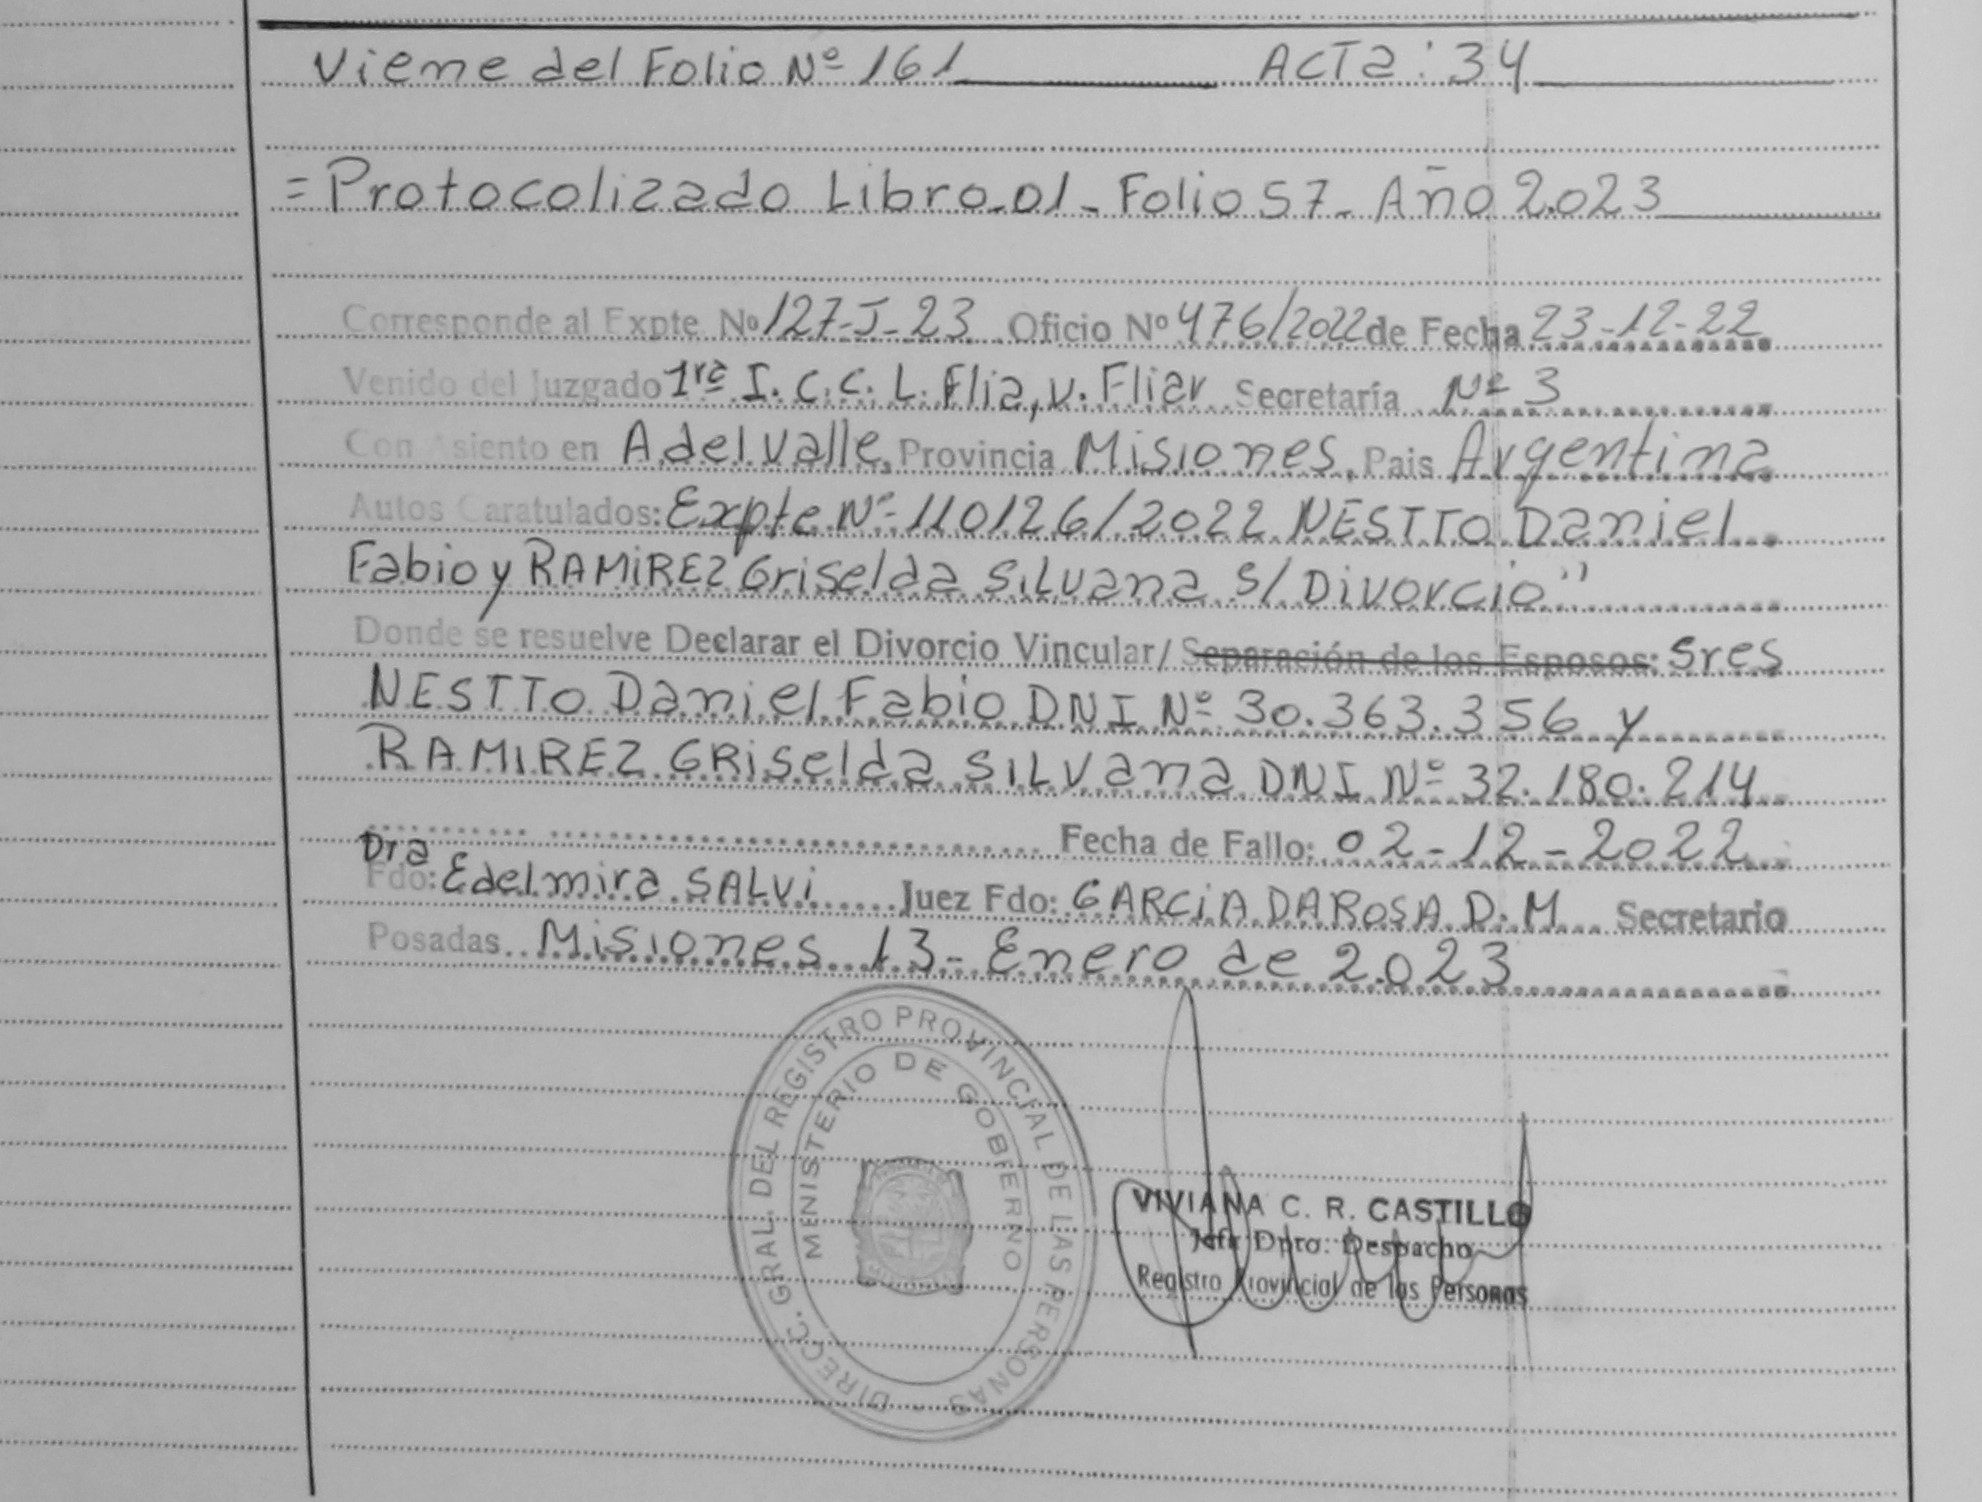 Viene del Folio Nº 161 ACTa: 34
= Protocolizado Libro-01- Folio 57- Año 2.023
Corresponde al Expte Nº 127-J-23 Oficio Nº 476/2022 de Fecha 23-12-22
Venido del Juzgado 1ra I. C. C. L. Flia, v. Fliar Secretaría Nº 3
Con Asiento en A. del Valle, Provincia Misiones, Pais Argentina
Autos Caratulados: Expte Nº 110126/2022 NESTTO Daniel
Fabio y RAMIREZ Griselda Silvana S/Divorcio"
Donde se resuelve Declarar el Divorcio Vincular/ Separación de los Esposos: Sres
NESTTO Daniel Fabio DNI Nº 30.363.356 y
RAMIREZ GRiselda SiLVana DNI Nº 32.180.214
Fecha de Fallo: 02-12-2022
Dra
Fdo: Edelmira SALVi Juez Fdo: GARCiA DAROSA D.M Secretario
Posadas Misiones 13- Enero de 2.023
DIRECC. GRAL. DEL REGISTRO PROVINCIAL DE LAS PERSONAS
MINISTERIO DE GOBIERNO
VIVIANA C. R. CASTILLO
Jefa Dpto. Despacho
Registro Provincial de las Personas